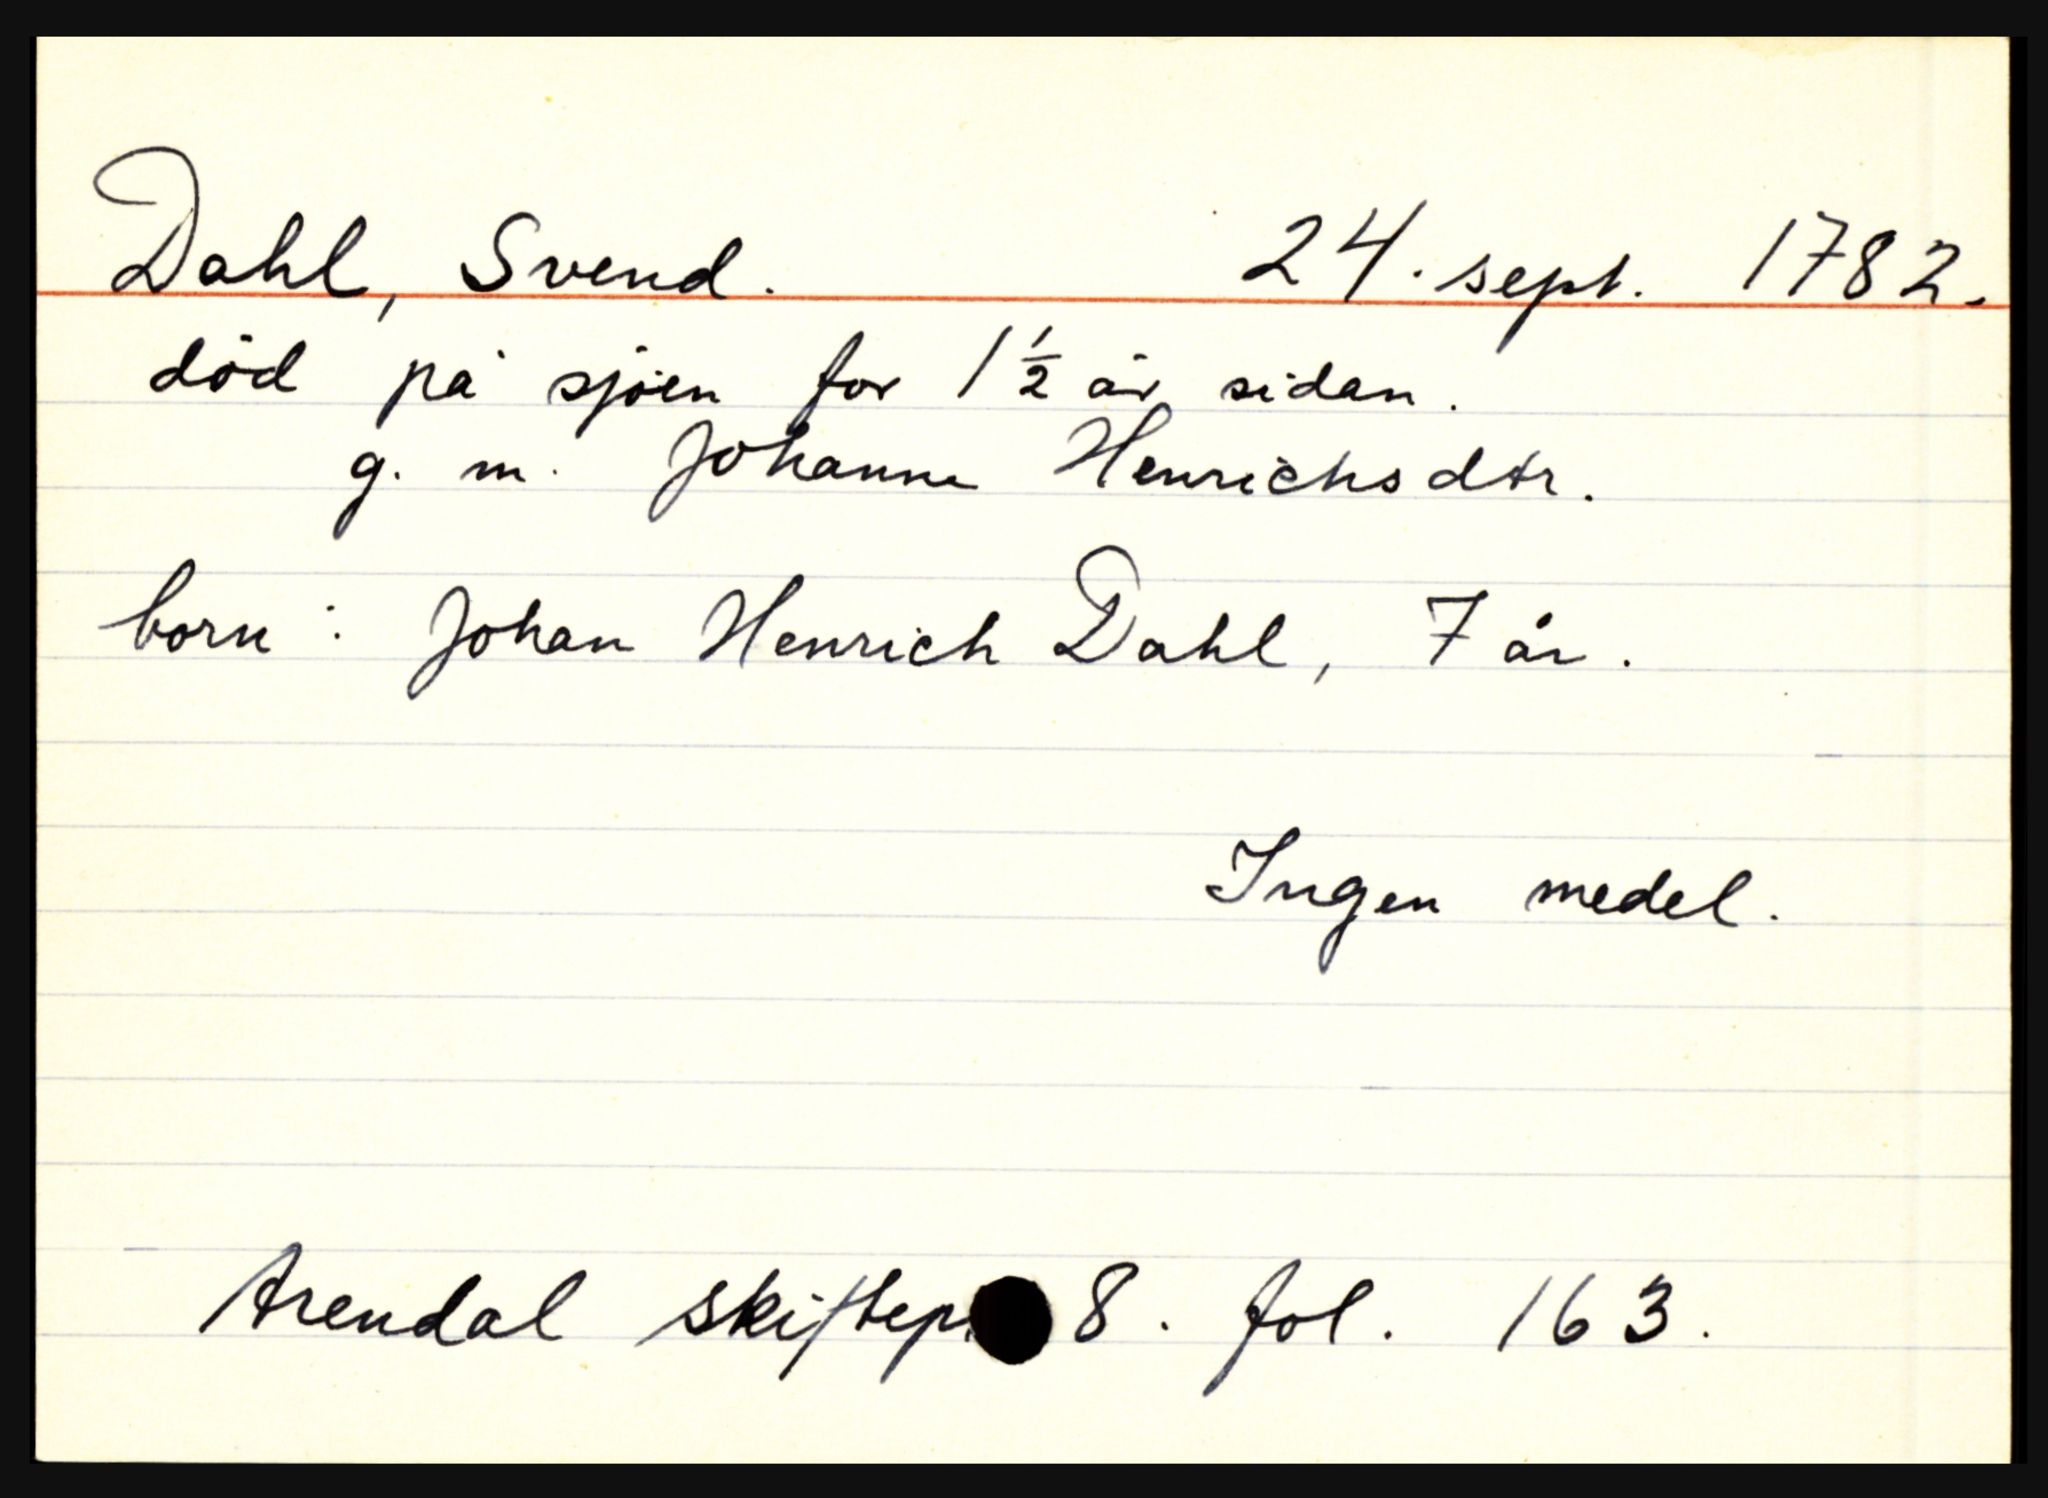 Dahl, Svend. 24. sept. 1782.
død på sjøen for 1 1/2 år sidan.
g. m. Johanne Henrichsdtr.
born: Johan Henrich Dahl, 7 år.
Ingen medel.
Arendal skiftep. 8. fol. 163.